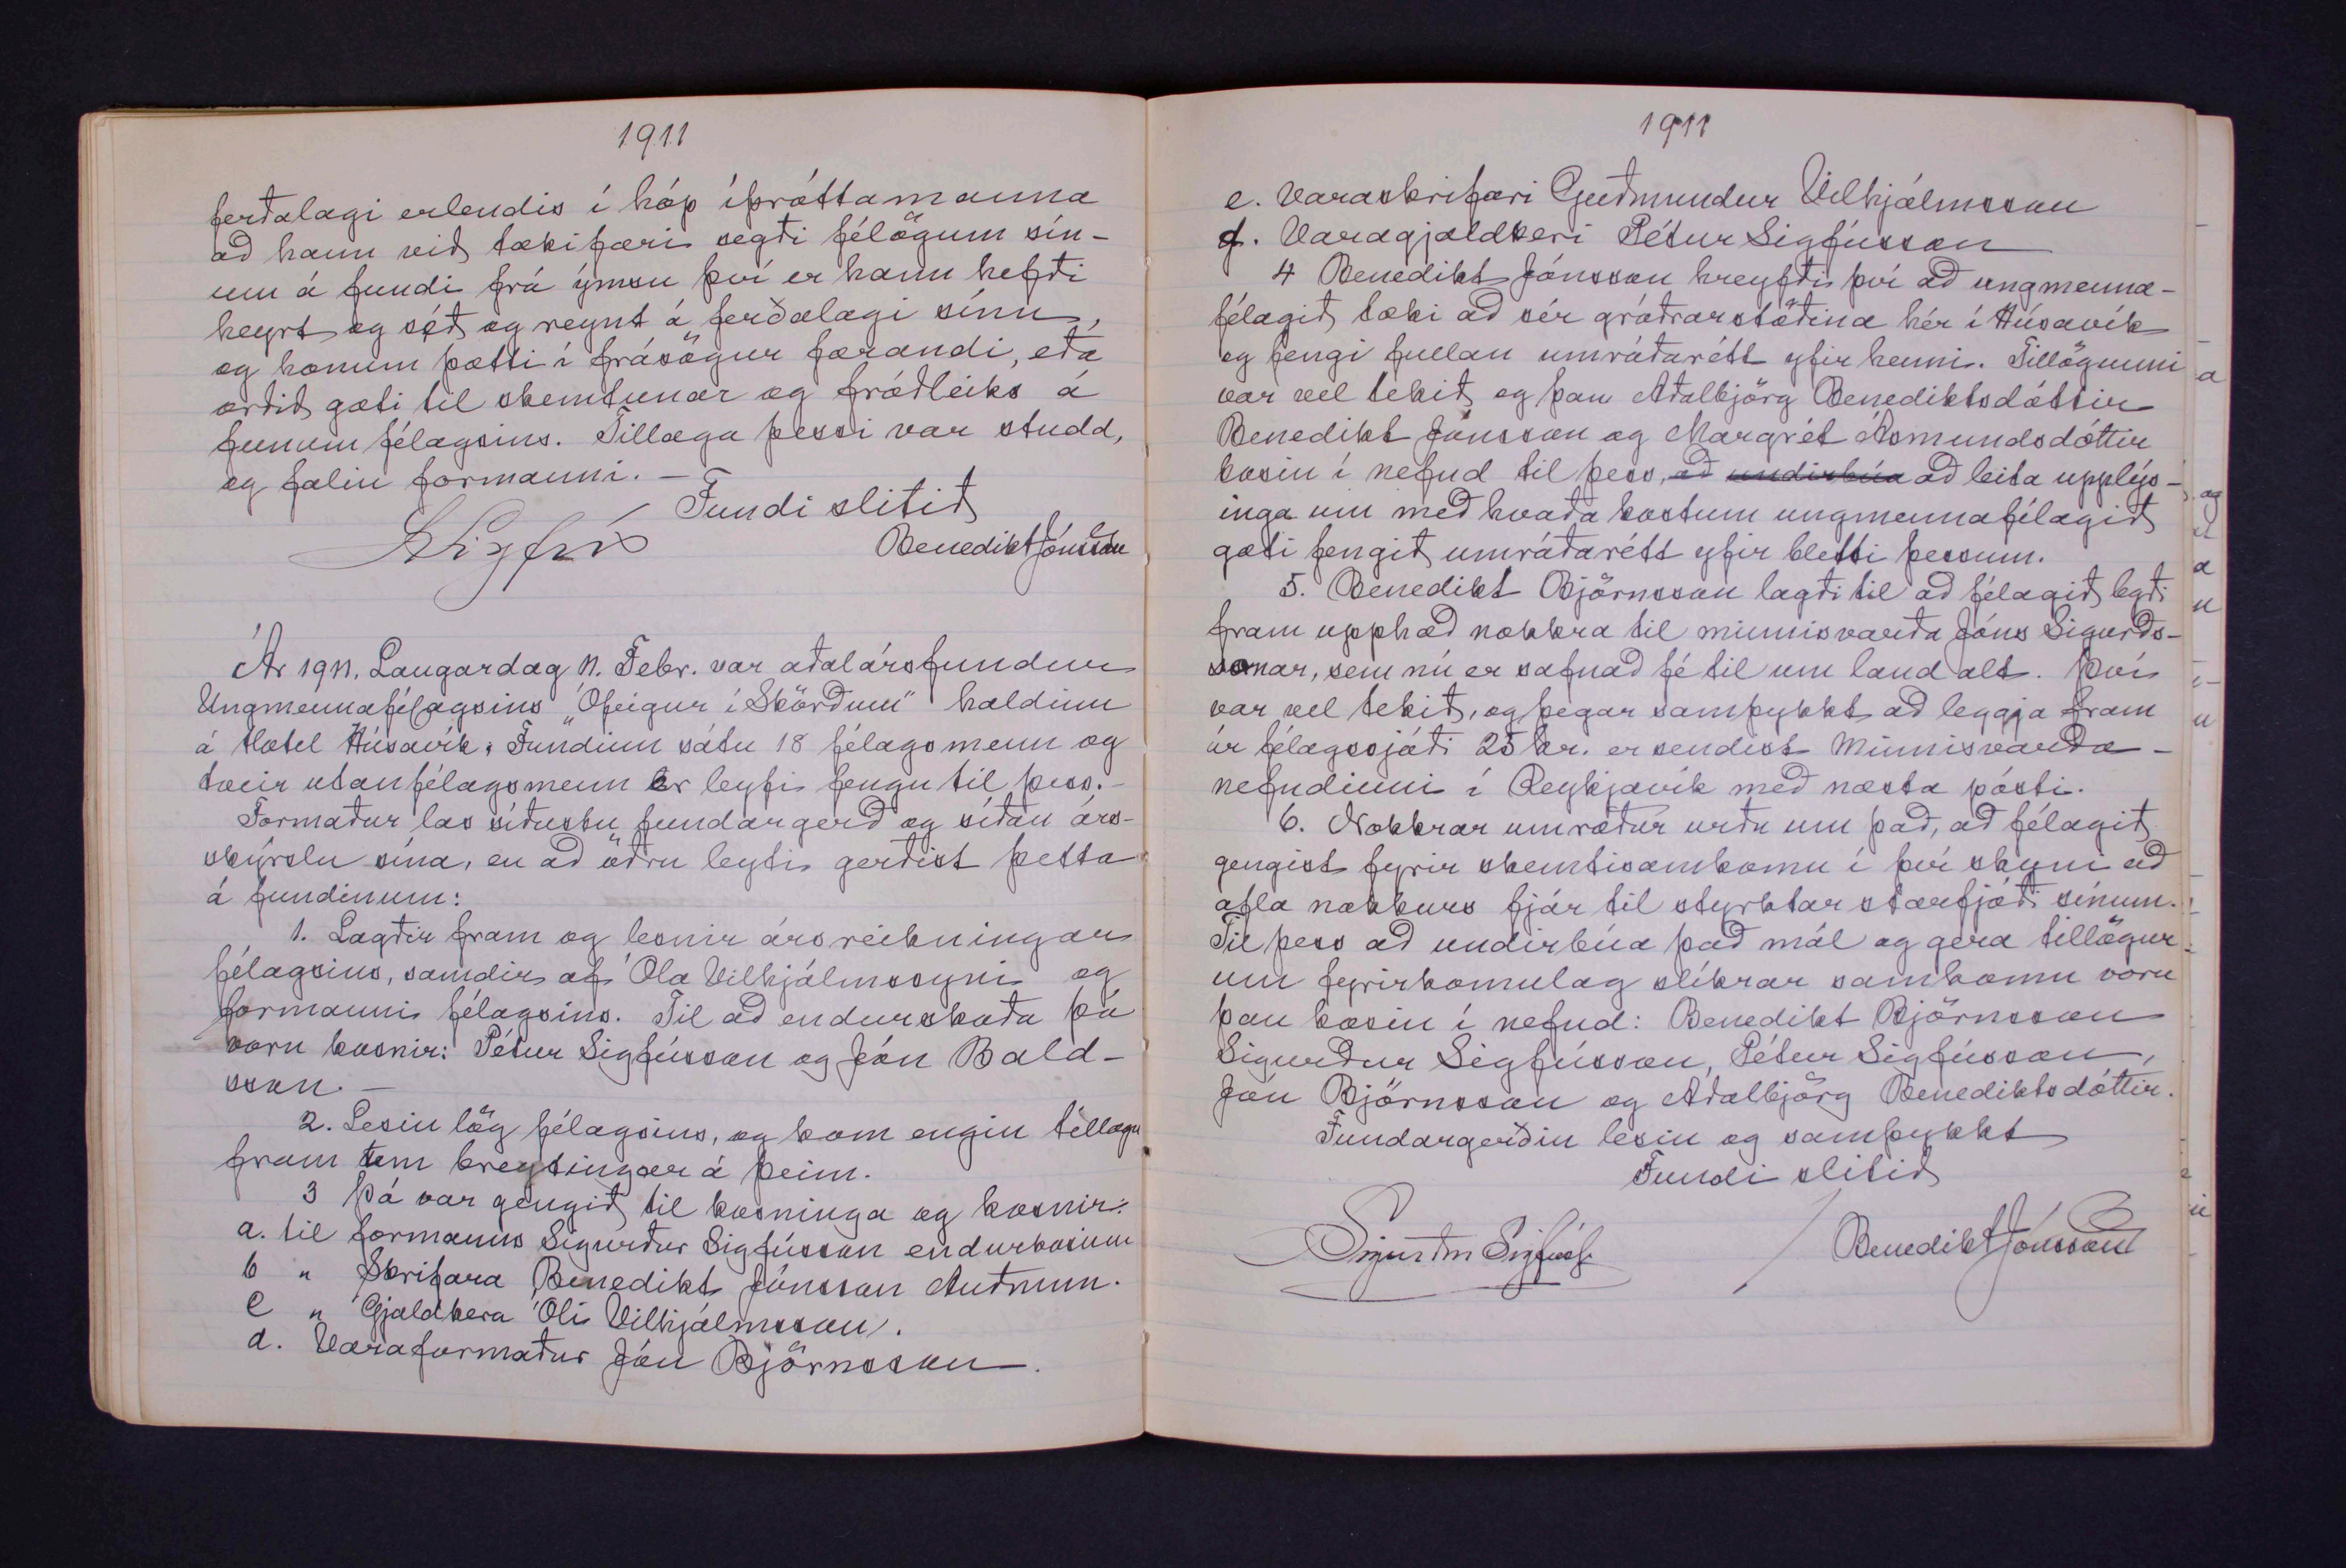 1911
ferðalagi erlendis í hóp íþróttamanna
að hann við tækifæri segði félögum sín-
um á fundi frá ýmsu því er hann hefði
heyrt og séð og reynt á ferðalagi sínu,
og honum þætti í frásögur færandi, eða
orðið gæti til skemtunar og fróðleiks á
funum félagsins. Tillaga þessi var studd,
og falin formanni. —
Fundi slitið
SSigfús Benedikt Jónsson
Ár 1911. Laugardag 11. Febr. var aðalársfundur
Ungmennafélagsins „Ófeigur í Skörðum" haldinn
á Hotel Húsavík. Fundinn sátu 18 félagsmenn og
tveir utanfélagsmenn er leyfi fengu til þess. -
Formaður las síðustu fundargerð og síðan árs-
skýrslu sína, en að öðru leyti gerðist þetta
á fundinum:
1. Lagðir fram og lesnir ársreikningar
félagsins, samdir af Óla Vilhjálmssyni og
formanni félagsins. Til að endurskoða þá
voru kosnir: Pétur Sigfússon og Jón Bald-
sson. —
2. Lesin lög félagsins, og kom engin tillaga
fram um breytingar á þeim.
3 Þá var gengið til kosninga og kosnir:
a. til formanns Sigurður Sigfússon endurkosinn
b " Skrifara Benedikt Jónsson Auðnum.
c " Gjaldkera Óli Vilhjálmsson.
d. Varaformaður Jón Björnsson.
1911
e. Varaskrifari Guðmundur Vilhjálmsson
f. Varagjaldkeri Pétur Sigfússon
4 Benedikt Jónsson hreyfði því að ungmenna-
félagið tæki að sér gróðrarstöðina hér í Húsavík
og fengi fullan umráðarétt yfir henni. Tillögunni
var vel tekið og þau Aðalbjörg Benediktsdóttir
Benedikt Jónsson og Margrét Ásmundsdóttir
kosin í nefnd til þess, að undirbúa að leita upplýs-
inga um með hvaða kostum ungmennafélagið
gæti fengið umráðarétt yfir bletti þessum.
5. Benedikt Björnsson lagði til að félagið legði
fram upphæð nokkra til minnisvarða Jóns Sigurðs-
sonar, sem nú er safnað fé til um land alt. Því
var vel tekið, og þegar samþykkt að leggja fram
úr félagssjóði 25 kr. er sendist Minnisvarða-
nefndinni í Reykjavík með næsta pósti.
6. Nokkrar umræður urðu um það, að félagið
gengist fyrir skemtisamkomu í því skyni að
afla nokkurs fjár til styrktar starfjóði sínum.
Til þess að undirbúa það mál og gera tillögur
um fyrirkomulag slíkrar samkomu voru
þau kosin í nefnd: Benedikt Björnsson
Sigurður Sigfússon, Pétur Sigfússon,
Jón Björnsson og Aðalbjörg Benediktsdóttir.
Fundargerðin lesin og samþykkt
Fundi slitið
Sigurður Sigfúss. Benedikt Jónsson